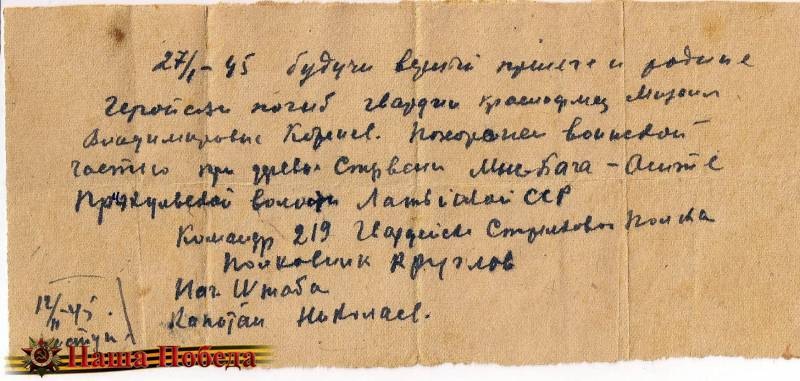 27/I-45 будучи верный присяге и родине
Геройски погиб гвардии красноармеец Михаил
Владимирович Корнев. Похоронен воинской
частью при дер
Приэкульской волости Латвийской ССР
Командр 219 Гвардейск Стрелковог Полка
Полковник Круглов
Нач Штаба
Капитан Николаев.
12/II-45.
Наша Победа